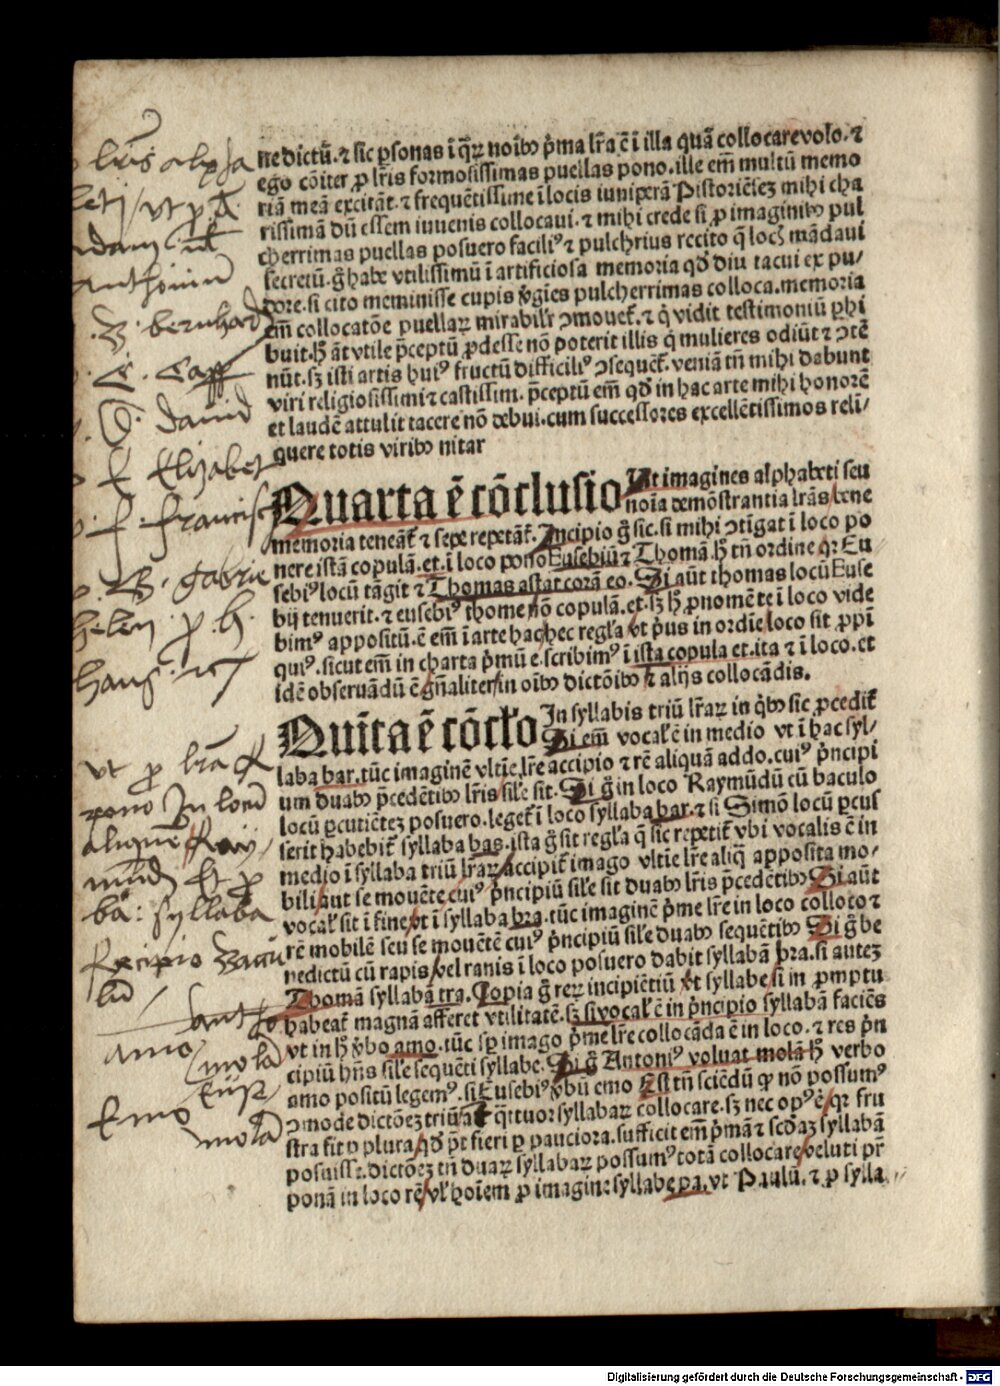 nedictū. ⁊ sic ꝑsonas ī q̄ꝝ noībꝰ p̄ma lr̄a ē ī illa quā collocare volo. ⁊
ego cōiter ꝓ lr̄is formosissimas puellas pono. ille em̄ multū memo
riā meā excitāt. ⁊ frequētissime ī locis iuniperā Pistoriēsez mihi cha
rissimā dū essem iuuenis collocaui. ⁊ mihi crede si ꝓ imaginibꝰ pul
cherrimas puellas posuero faciliꝰ ⁊ pulchrius recito q̄ locꝭ mādaui
secretū. g̊ habe vtilissimū ī artificiosa memoria qđ diu tacui ex pu/
dore. si cito meminisse cupis ꝟgīes pulcherrimas colloca. memoria
em̄ collocatōe puellaꝝ mirabilr̄ ꝯmouet̄. ⁊ q̇ vidit testimoniū ꝑhi
buit. h̄ āt vtile p̄ceptū ꝓdesse nō poterit illis q̇ mulieres odiūt ⁊ ꝯtē
nūt. sꝫ isti artis huiꝰ fructū difficiliꝰ ꝯsequēt̄. veniā tn̄ mihi dabunt
viri religiosissimi ⁊ castissim. p̄ceptū em̄ qđ in hac arte mihi honorē
et laudē attulit tacere nō debui. cum successores excellētissimos reli/
quere totis viribꝰ nitar
Quarta ē cōclusio Ut imagines alphabeti seu
noīa demōstrantia lr̄as bene
memoria teneāt̄ ⁊ sepe repetāt̄. Incipio g̊ sic. si mihi ꝯtīgat ī loco po
nere istā copulā. et. ī loco pono Eusebiū ⁊ Thomā. h̄ tn̄ ordine qꝛ Eu
sebiꝰ locū tāgit ⁊ Thomas astat corā eo. Si aūt thomas locū Euse
bij tenuerit. ⁊ eusebiꝰ thome nō copulā. et. sꝫ h̄ ꝓnomē te ī loco vide
bimꝰ appositū. ē em̄ ī arte hac hec regl̄a vt p̄us in ordīe loco sit ꝓpī
quiꝰ. sicut em̄ in charta p̄mū e. scribimꝰ ī ista copula et. ita ⁊ ī loco. et
idē obseruādū ē gn̄aliter in oībꝰ dictōibꝰ ⁊ alijs collocādis.
Quīta ē cōcl̄o In syllabis triū lr̄aꝝ in q̇bꝰ sic ꝓcedit̄
Si em̄ vocal̄ ē in medio vt ī hac syl/
laba bar. tūc imaginē vltīe lr̄e accipio ⁊ rē aliquā addo. cuiꝰ p̄ncipi
um duabꝰ p̄cedētibꝰ lr̄is sil̄e sit. Si g̊ in loco Raymūdū cū baculo
locū ꝑcutiētez posuero. leget̄ ī loco syllaba bar. ⁊ si Simō locū ꝑcus
serit habebit̄ syllaba bas. ista g̊ sit regl̄a q̄ sic repetit̄ vbi vocalis ē in
medio ī syllaba triū lr̄aꝝ accipit̄ imago vltīe lr̄e aliq̄ apposita mo/
bili aut se mouēte cuiꝰ p̄ncipiū sil̄e sit duabꝰ lr̄is p̄cedētibꝰ Si aūt
vocal̄ sit ī fine vt ī syllaba bra. tūc imaginē p̄me lr̄e in loco colloto ⁊
rē mobilē seu se mouētē cuiꝰ p̄ncipiū sil̄e duabꝰ sequētibꝰ Si g̊ be
nedictū cū rapis vel ranis ī loco posuero dabit syllabā bra. si autez
Thomā syllabā tra. Copia g̊ reꝝ incipiētiū vt syllabe si in ꝓmptu
habeat̄ magnā afferet vtilitatē. sꝫ si vocal̄ ē in p̄ncipio syllabā faciēs
vt in h̄ ꝟbo amo. tūc sꝑ imago p̄me lr̄e collocāda ē in loco. ⁊ res p̄n
cipiū hn̄s sil̄e sequēti syllabe. Si g̊ Antoniꝰ voluat molā h̄ verbo
amo positū legemꝰ. si Eusebiꝰ ꝟbū emo Est tn̄ sciēdū ꝙ nō possumꝰ
ꝯmode dictōez triū at q̄ttuor syllabaꝝ collocare. sꝫ nec opꝰ ē qꝛ fru
stra fit ꝑ plura qđ p̄t fieri ꝑ pauciora. sufficit em̄ p̄mā ⁊ scđaꝫ syllabā
posuisse. dictōez tn̄ duaꝝ syllabaꝝ possumꝰ totā collocare veluti pr̄
ponā in loco rē vl̄ hoīem ꝓ imagine syllabe pa. vt Paulū. ⁊ ꝓ sylla
lr̄is alpha
leti / vt p A
adam vl̄
anthoniu
B. bernhard
C. Casp
D. dauid
E Elizabet
f francisc
G. gabrie
helen p h.
hanß. ꝛc
vt p lr̄a R
pono In locū
aliquē Ray/
mūd Et p
ba: syllaba
Recipio Bacu
lū /
antho
amo / mola
Euse
Emo mola
Digitalisierung gefördert durch die Deutsche Forschungsgemeinschaft - DFG